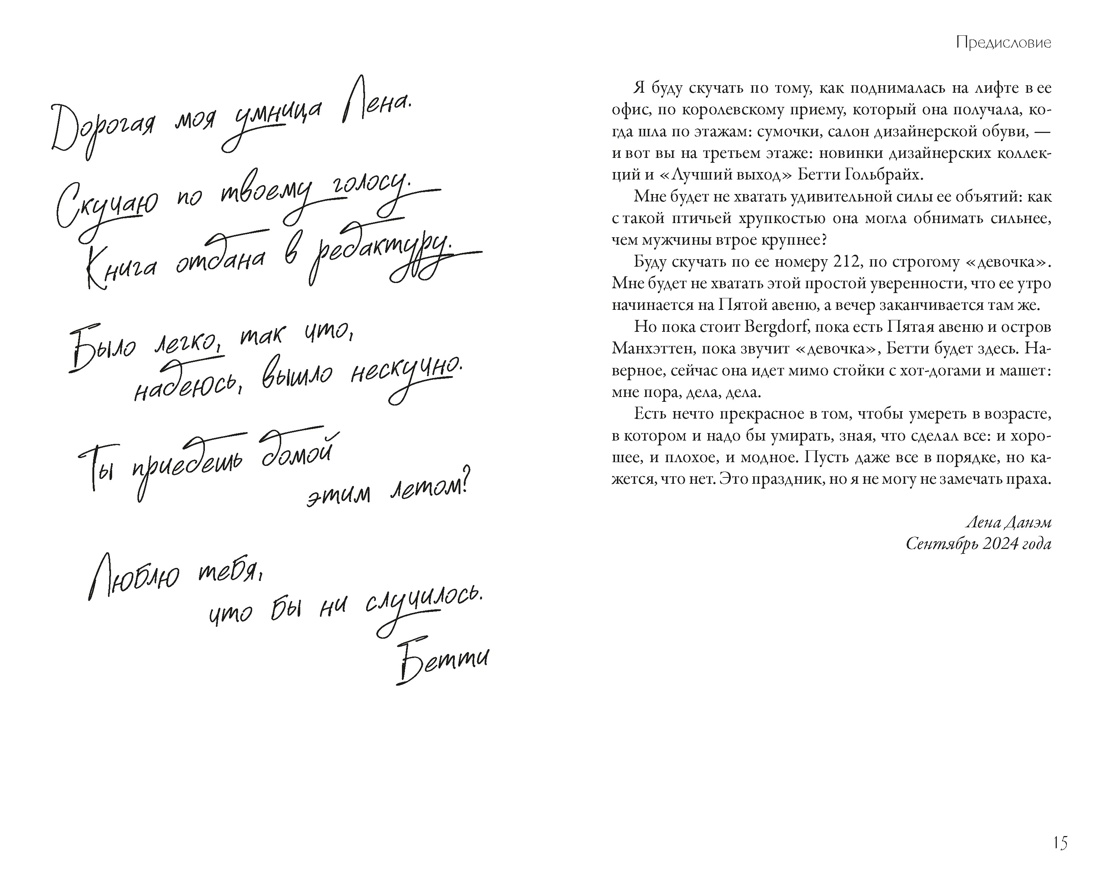 Дорогая моя умница Лена.
Скучаю по твоему голосу.
Книга отдана в редактуру.
Было легко, так что,
надеюсь, вышло нескучно.
Ты приедешь домой
этим летом?
Люблю тебя,
что бы ни случилось.
Бетти
Предисловие
Я буду скучать по тому, как поднималась на лифте в ее
офис, по королевскому приему, который она получала, ко-
гда шла по этажам: сумочки, салон дизайнерской обуви, —
и вот вы на третьем этаже: новинки дизайнерских коллек-
ций и «Лучший выход» Бетти Гольбрайх.
Мне будет не хватать удивительной силы ее объятий: как
с такой птичьей хрупкостью она могла обнимать сильнее,
чем мужчины втрое крупнее?
Буду скучать по ее номеру 212, по строгому «девочка».
Мне будет не хватать этой простой уверенности, что ее утро
начинается на Пятой авеню, а вечер заканчивается там же.
Но пока стоит Bergdorf, пока есть Пятая авеню и остров
Манхэттен, пока звучит «девочка», Бетти будет здесь. На-
верное, сейчас она идет мимо стойки с хот-догами и машет:
мне пора, дела, дела.
Есть нечто прекрасное в том, чтобы умереть в возрасте,
в котором и надо бы умирать, зная, что сделал все: и хоро-
шее, и плохое, и модное. Пусть даже все в порядке, но ка-
жется, что нет. Это праздник, но я не могу не замечать праха.
Лена Данэм
Сентябрь 2024 года
15